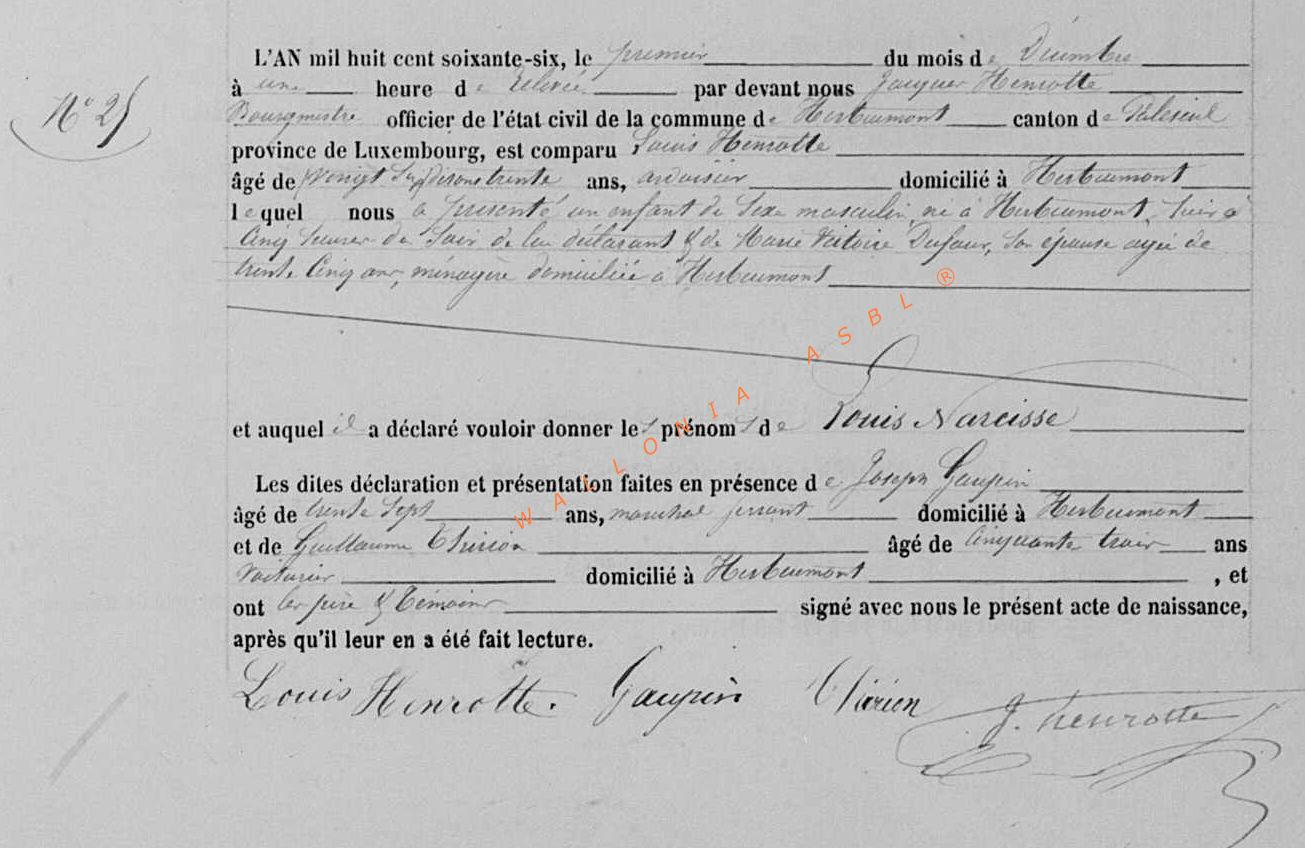 L'AN mil huit cent soixante-six, le premier du mois de Décembre
N° 25
à une heure de Relevée par devant nous Jacques Henrotte
Bourgmestre officier de l'état civil de la commune de Herbeumont canton de Paliseul
province de Luxembourg, est comparu Louis Henrotte
âgé de trente ans, ardoisier domicilié à Herbeumont
lequel nous a présenté un enfant de sexe masculin, né à Herbeumont, hier à
cinq heures du soir de lui déclarant & de Marie Victoire Dufour, son épouse agée de
trente cinq ans, ménagère domiciliée à Herbeumont
et auquel il a déclaré vouloir donner les prénoms de Louis Narcisse
Les dites déclaration et présentation faites en présence de Joseph Gaupin
âgé de trente sept ans, marechal ferrant domicilié à Herbeumont
et de Guillaume Thirion âgé de cinquante trois ans
voiturier domicilié à Herbeumont, et
ont les père & témoins signé avec nous le présent acte de naissance,
après qu'il leur en a été fait lecture.
Louis Henrotte. Gaupin Thirion J. henrotte
WALLONIA ASBL ®